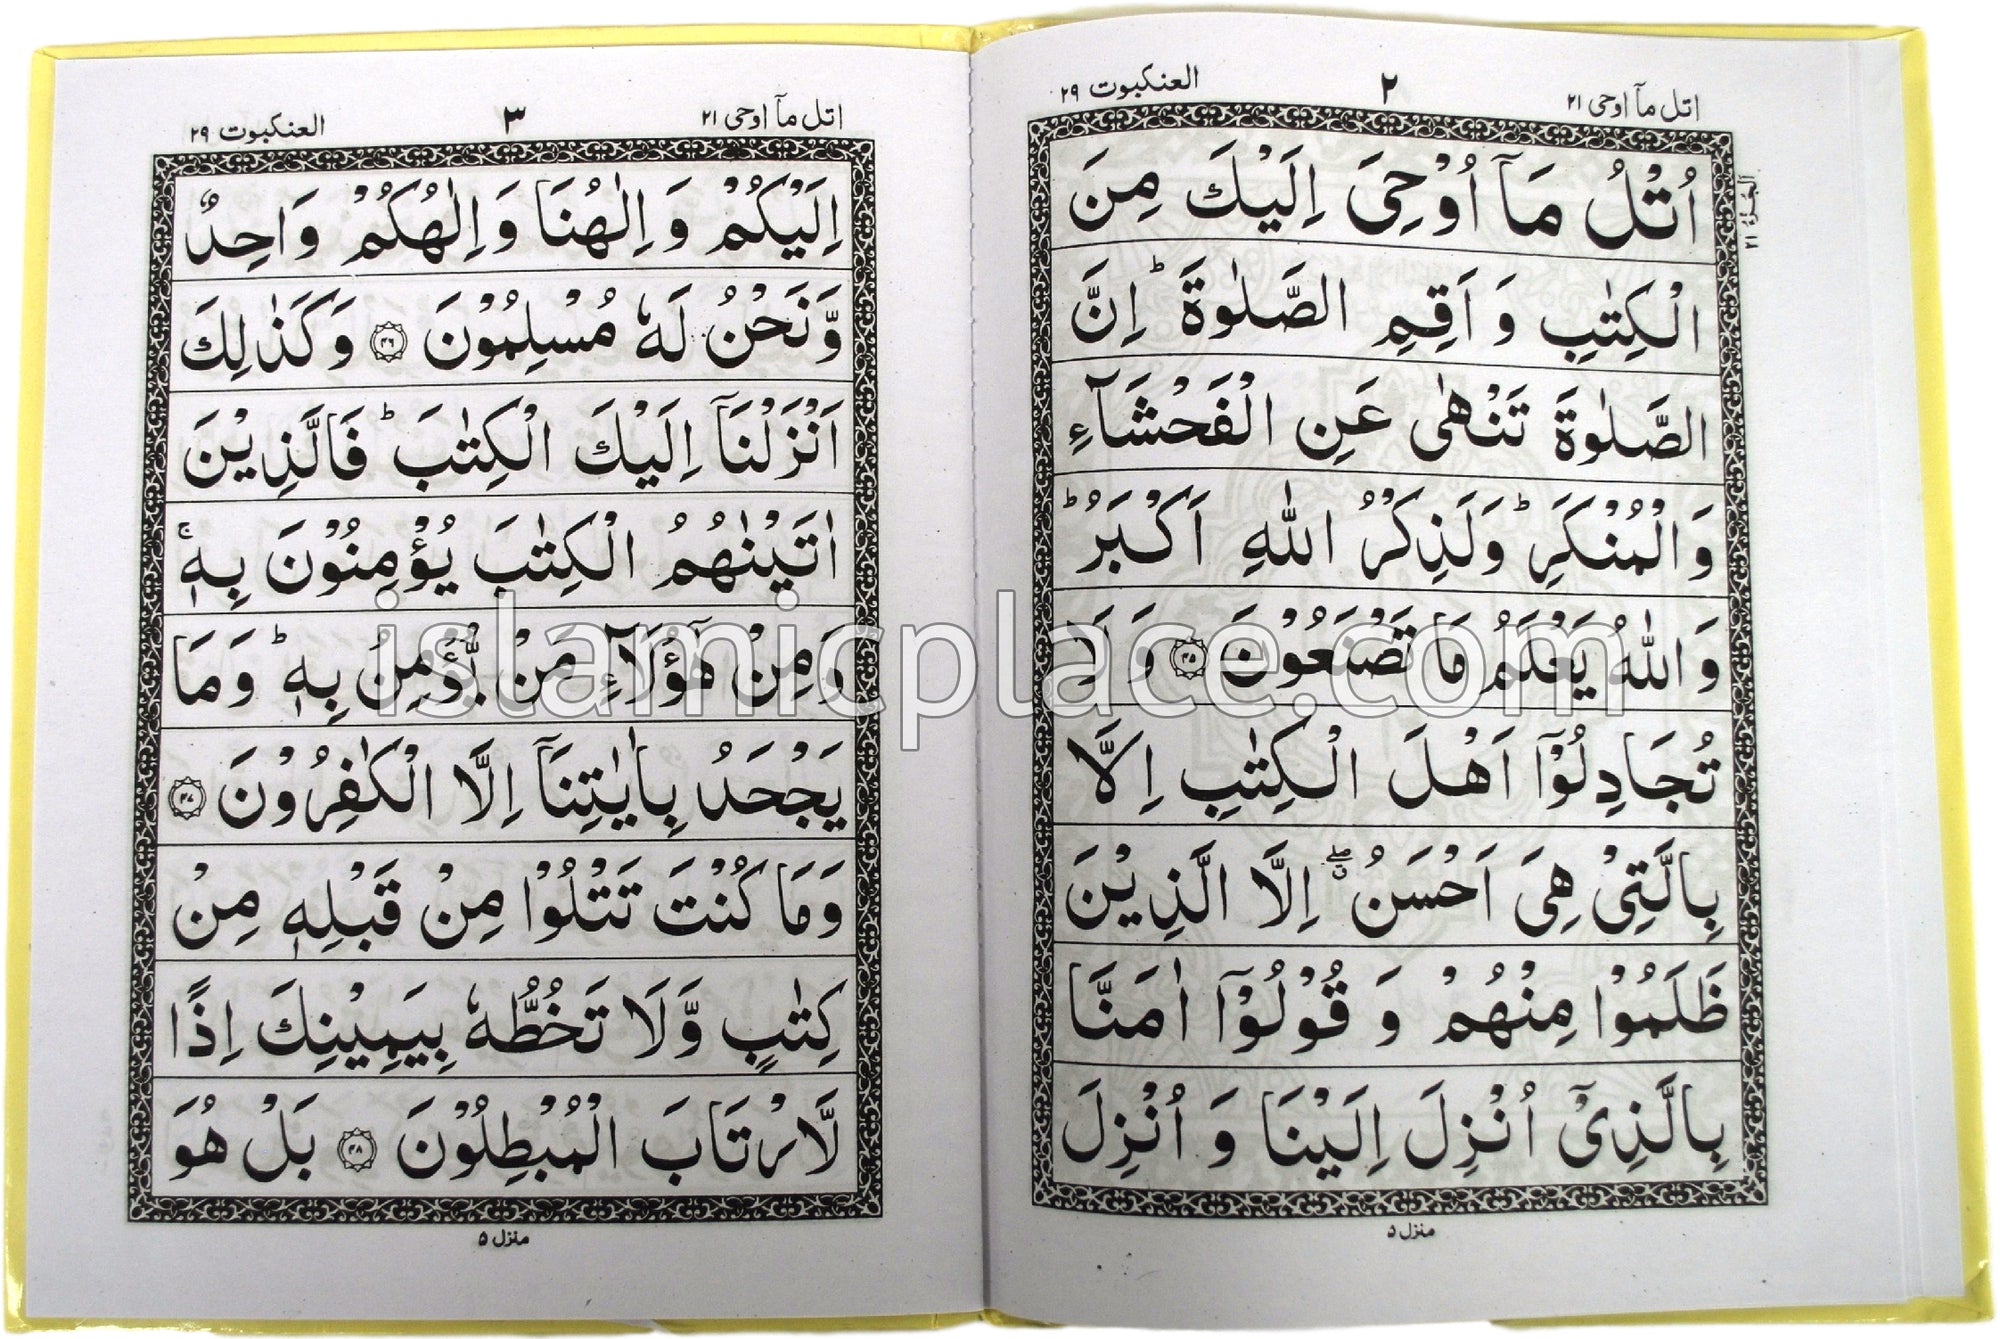 اتل مآ اوحی ۲۱
۲
العنكبوت ۲۹
الجزء ۲۱
اُتْلُ مَاۤ اُوْحِیَ اِلَیْكَ مِنَ
الْكِتٰبِ وَ اَقِمِ الصَّلٰوةَ ؕ اِنَّ
الصَّلٰوةَ تَنْهٰی عَنِ الْفَحْشَآءِ
وَ الْمُنْكَرِ ؕ وَ لَذِكْرُ اللّٰهِ اَكْبَرُ ؕ
وَ اللّٰهُ یَعْلَمُ مَا تَصْنَعُوْنَ ۴۵ وَ لَا
تُجَادِلُوْۤا اَهْلَ الْكِتٰبِ اِلَّا
بِالَّتِیْ هِیَ اَحْسَنُ ۖۗ اِلَّا الَّذِیْنَ
ظَلَمُوْا مِنْهُمْ وَ قُوْلُوْۤا اٰمَنَّا
بِالَّذِیْۤ اُنْزِلَ اِلَیْنَا وَ اُنْزِلَ
منزل ۵
اتل مآ اوحی ۲۱
۳
العنكبوت ۲۹
اِلَیْكُمْ وَ اِلٰهُنَا وَ اِلٰهُكُمْ وَاحِدٌ
وَّ نَحْنُ لَهٗ مُسْلِمُوْنَ ۴۶ وَ كَذٰلِكَ
اَنْزَلْنَاۤ اِلَیْكَ الْكِتٰبَ ؕ فَالَّذِیْنَ
اٰتَیْنٰهُمُ الْكِتٰبَ یُؤْمِنُوْنَ بِهٖ ۚ
وَ مِنْ هٰۤؤُلَآءِ مَنْ یُّؤْمِنُ بِهٖ ؕ وَ مَا
یَجْحَدُ بِاٰیٰتِنَاۤ اِلَّا الْكٰفِرُوْنَ ۴۷
وَ مَا كُنْتَ تَتْلُوْا مِنْ قَبْلِهٖ مِنْ
كِتٰبٍ وَّ لَا تَخُطُّهٗ بِیَمِیْنِكَ اِذًا
لَّارْتَابَ الْمُبْطِلُوْنَ ۴۸ بَلْ هُوَ
منزل ۵
islamicplace.com